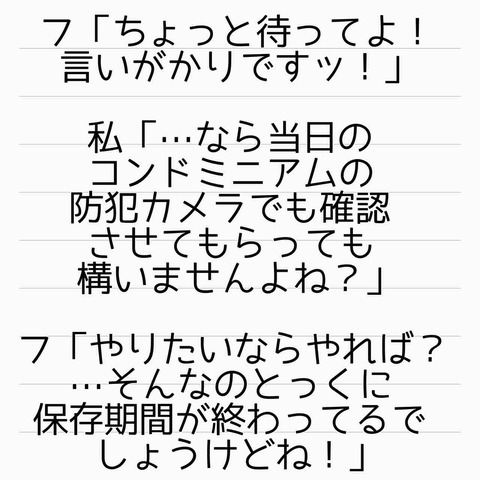 フ「ちょっと待ってよ！
言いがかりですッ！」
私「…なら当日の
コンドミニアムの
防犯カメラでも確認
させてもらっても
構いませんよね？」
フ「やりたいならやれば？
…そんなのとっくに
保存期間が終わってるで
しょうけどね！」